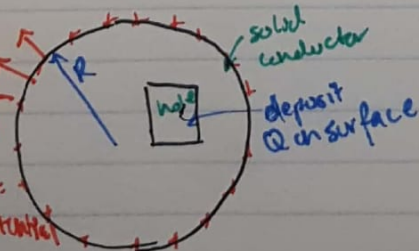 solid
conductor
R
hole
deposit
Q on surface